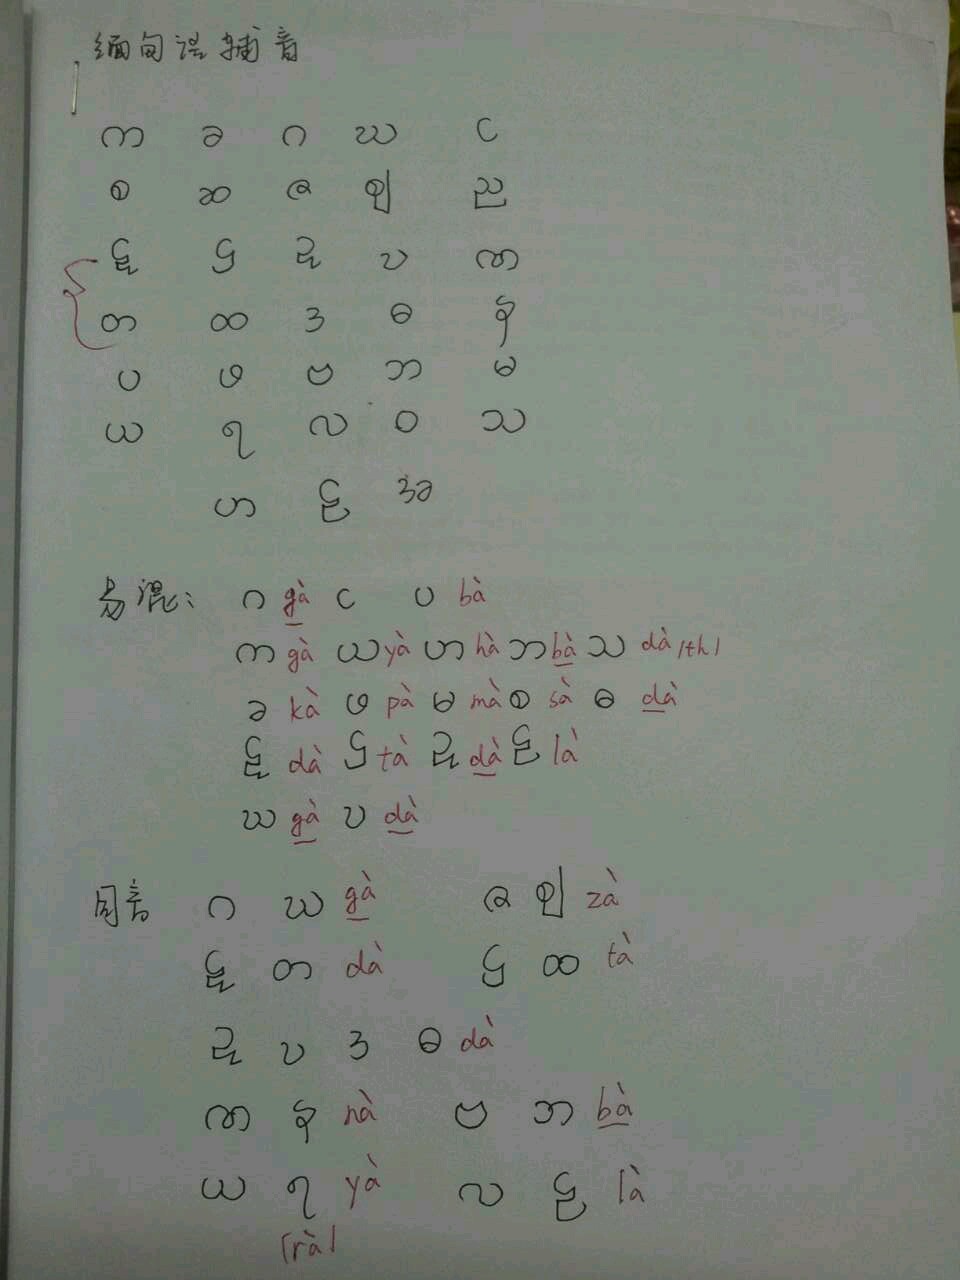 缅甸语辅音
က ခ ဂ ဃ င
စ ဆ ဇ ဈ ည
ဋ ဌ ဍ ပ ဏ
တ ထ ဒ ဓ န
ပ ဖ ဗ ဘ မ
ယ ရ လ ဝ သ
ဟ ဠ အ
易混: ဂ gà င ပ bà
က gà ယ yà ဟ hà ဘ bà သ dà /th/
ခ kà ဖ pà မ mà စ sà ဓ dà
ဋ dà ဌ tà ဍ dà ဠ là
ဃ gà ဎ dà
同音 ဂ ဃ gà ဇ ဈ zà
ဋ တ dà ဌ ထ tà
ဍ ဎ ဒ ဓ dà
ဏ န nà ဗ ဘ bà
ယ ရ yà လ ဠ là
[rà]